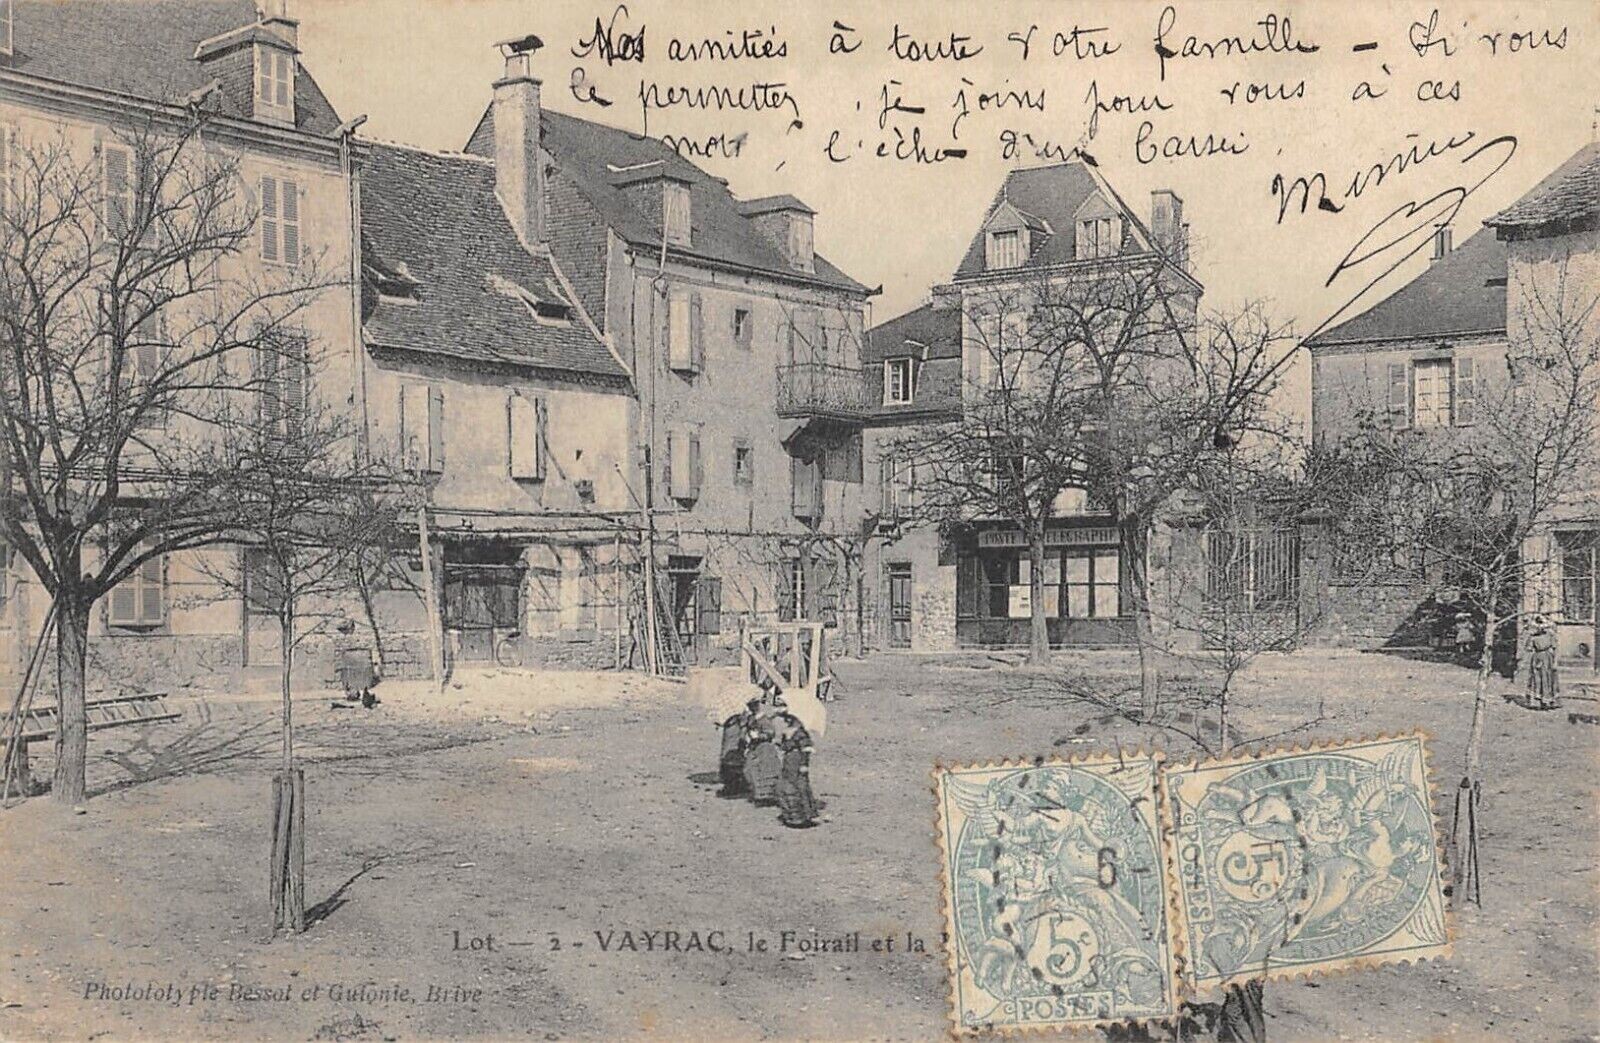 Nos amitiés à toute votre famille - Si vous
le permettez, je joins pour vous à ces
mots, l'écho d'un baiser.
POSTE TELEGRAPHE
5c POSTES
5c POSTES
6
Lot - 2 - VAYRAC, le Foirail et la
Phototolypie Bessot et Guionie, Brive